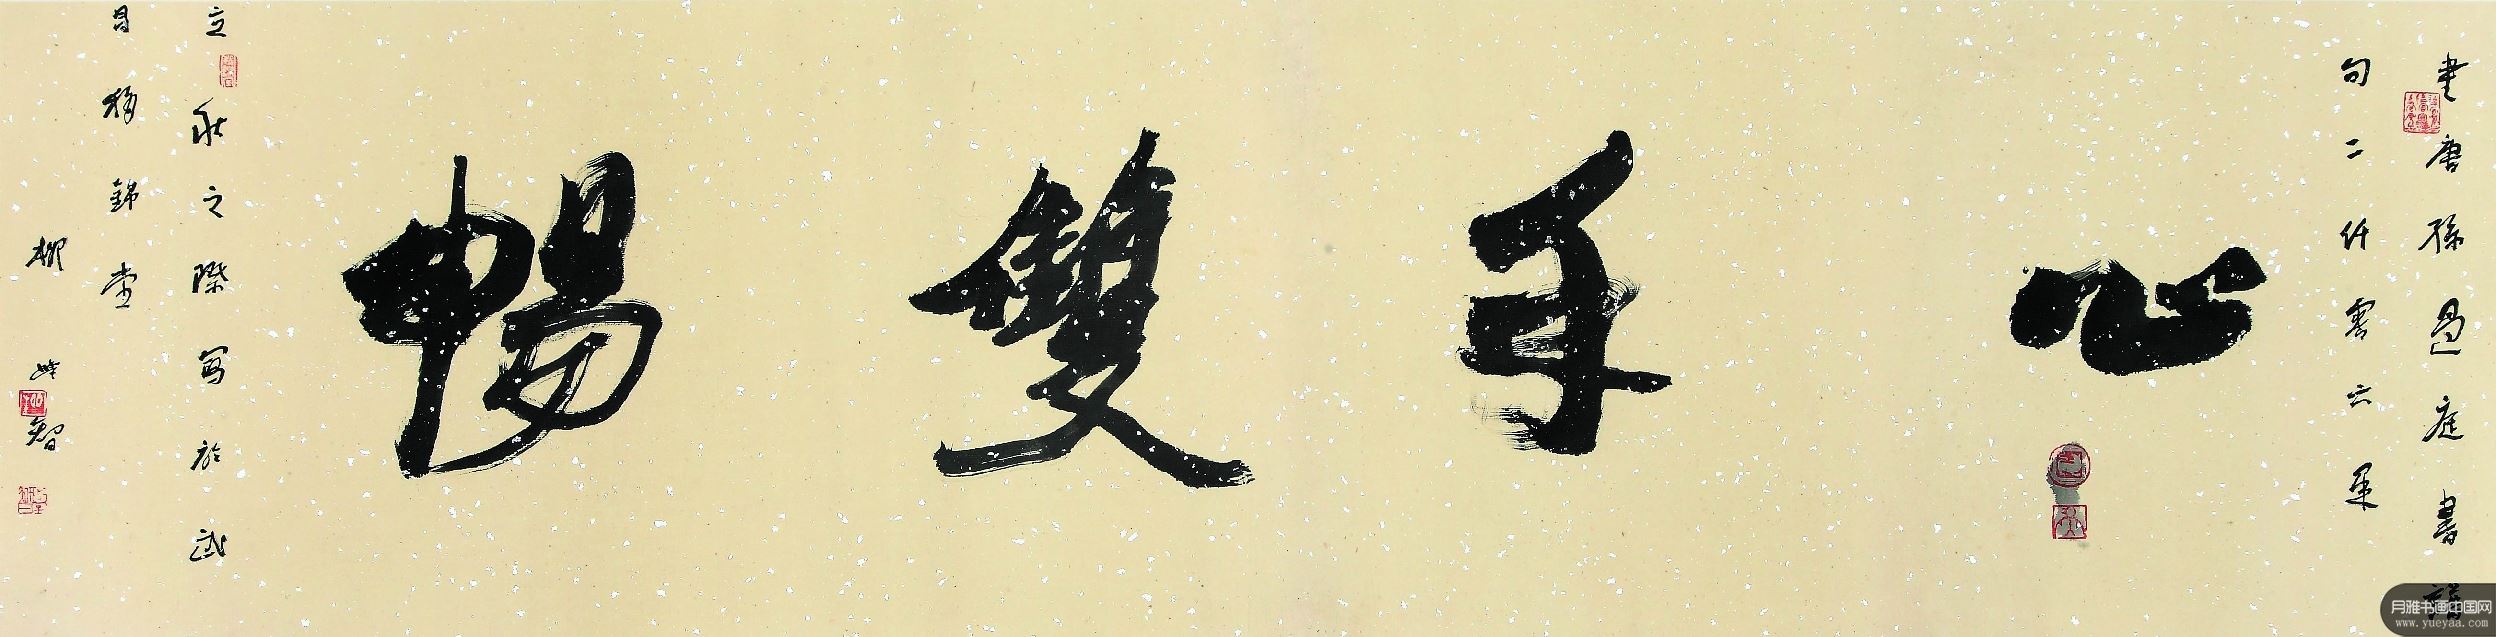 書唐孫過庭書譜
句二仟零六年
心手雙暢
立秋之際寫於武
昌移錦堂
柳
智
月雅书画中国网
www.yueyaa.com